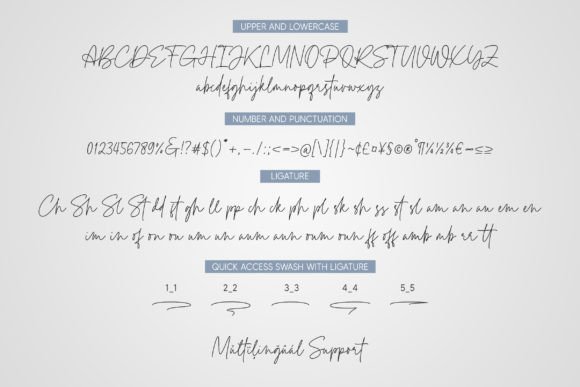 UPPER AND LOWERCASE
ABCDEFGHIJKLMNOPQRSTUVWXYZ
abcdefghijklmnopqrstuvwxyz
NUMBER AND PUNCTUATION
0123456789%&!?#$()*+,-./:;<=>@[\]{|}~¢£¤¥§©®°¶¼½¾€−≤≥
LIGATURE
Ch Sh Sl St dd ft gh ll pp ch ck ph pl sk sh ss st sl am an au em en
im in of on ou um un aum aun oum oun ff off amb mb rr tt
QUICK ACCESS SWASH WITH LIGATURE
1_1 2_2 3_3 4_4 5_5
Múltîļïngüál Support